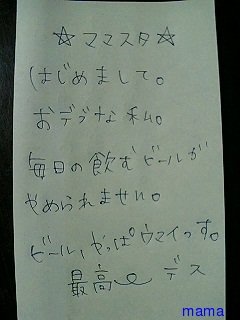 ☆ママスタ☆
はじめまして。
おデブな私。
毎日の飲むビールが
やめられません。
ビール、やっぱウマイっす。
最高 デス
mama